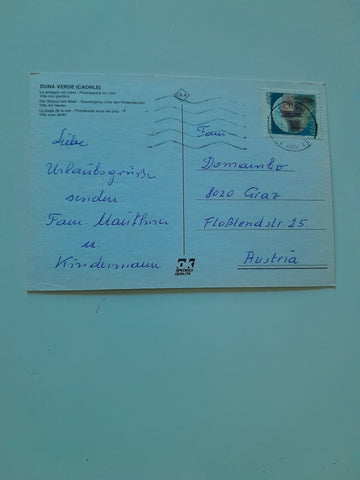 DUNA VERDE (CAORLE)
La spiaggia dal mare - Passeggiata tra i pini
Villa con giardino
Der Strand vom Meer - Spaziergang unter den Pinienbäumen
Villa mit Garten
La plage de la mer - Promenade sous les pins
Villa avec jardin
Liebe
Urlaubsgrüße
senden
Fam. Mauthner
u.
Kindermann
Fam.
Domainko
8020 Graz
Floßlendstr 25
Austria